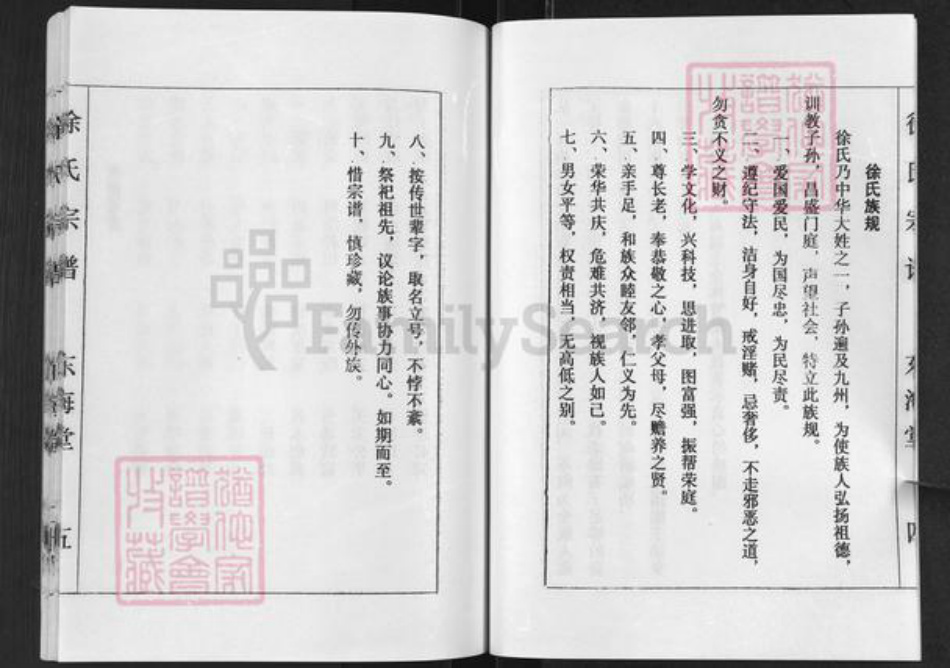 徐氏族规
徐氏乃中华大姓之一，子孙遍及九州，为使族人弘扬祖德，
训教子孙，昌盛门庭，声望社会，特立此族规。
一、爱国爱民，为国尽忠，为民尽责。
二、遵纪守法，洁身自好，戒淫赌，忌奢侈，不走邪恶之道，
勿贪不义之财。
三、学文化，兴科技，思进取，图富强，振帮荣庭。
四、尊长老，奉恭敬之心，孝父母，尽赡养之贤。
五、亲手足，和族众睦友邻，仁义为先。
六、荣华共庆，危难共济，视族人如己。
七、男女平等，权责相当，无高低之别。
八、按传世辈字，取名立号，不悖不紊。
九、祭祀祖先，议论族事协力同心。如期而至。
十、惜宗谱，慎珍藏，勿传外族。
徐氏宗谱 东海堂 五
FamilySearch